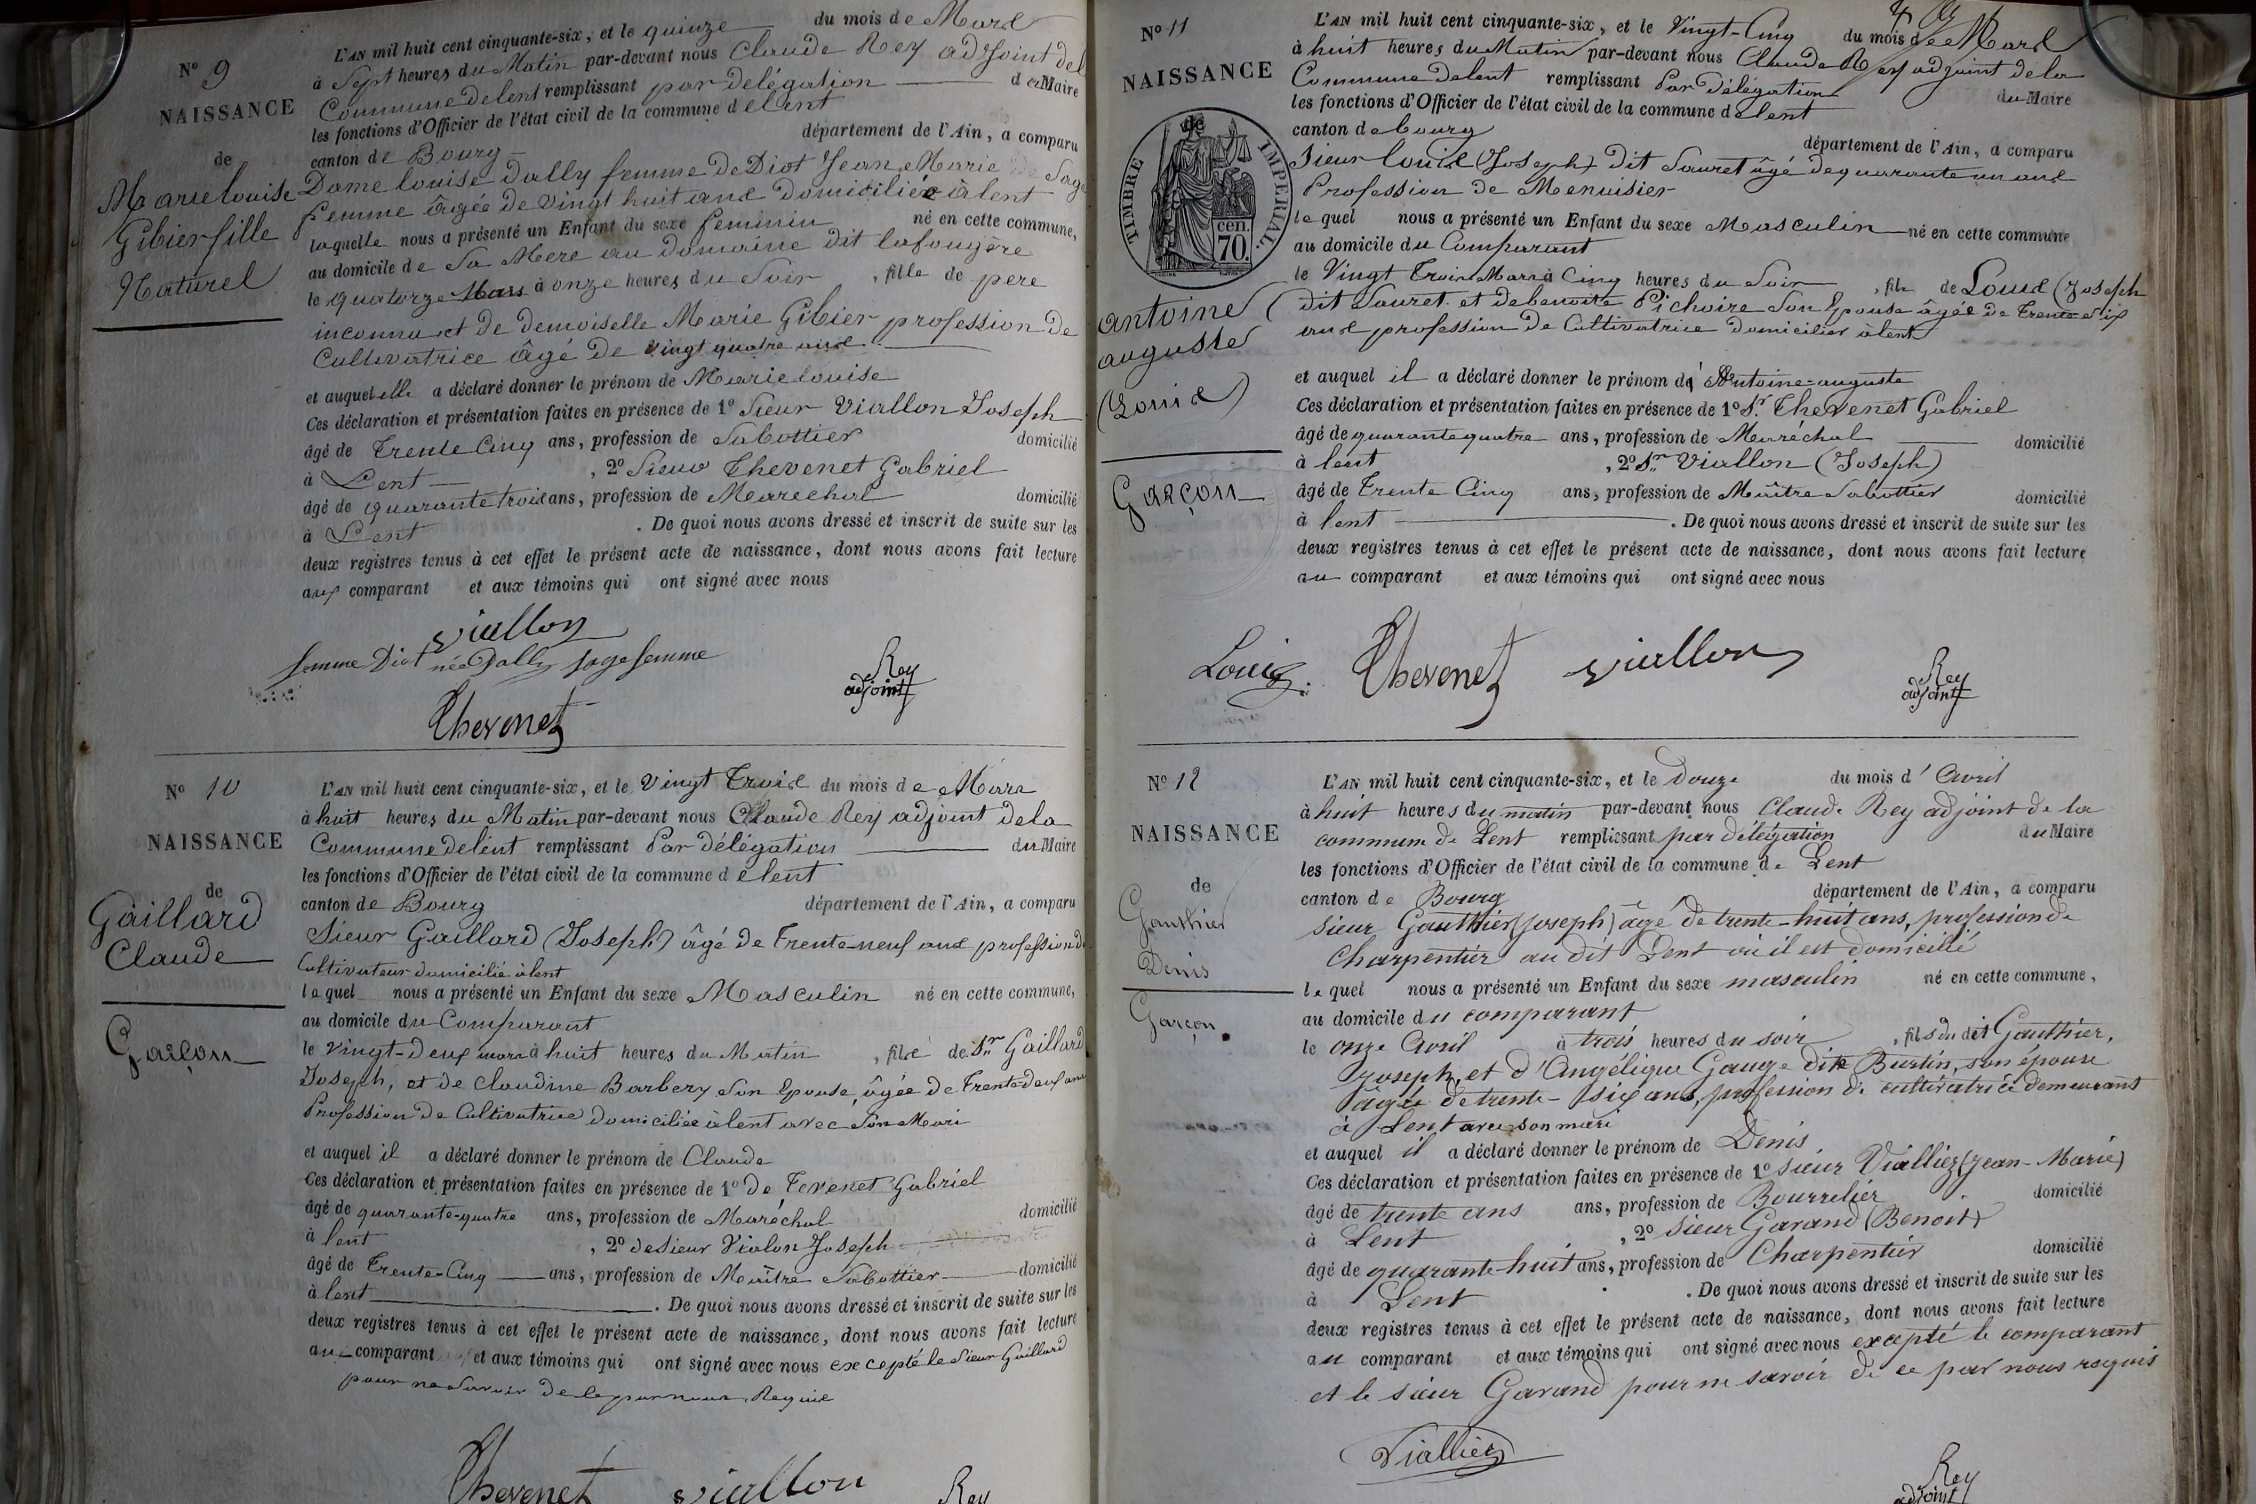 N° 9
NAISSANCE
de
Marie louise
Gibier fille
Naturel
L'AN mil huit cent cinquante-six, et le quinze du mois de Mars
à Sept heures du Matin par-devant nous Claude Rey adjoint del
Commune de lent remplissant par delégation du Maire
les fonctions d'Officier de l'état civil de la commune de lent
canton de Bourg département de l'Ain, a comparu
Dame louise Dally femme de Diot Jean Marie Sage
femme âgée de vingt huit ans domiciliée à lent
laquelle nous a présenté un Enfant du sexe feminin né en cette commune,
au domicile de Sa Mere au domaine dit lafougère
le quatorze Mars à onze heures du Soir, fille de pere
inconnu et de demoiselle Marie Gibier profession de
Cultivatrice âgé de vingt quatre ans
et auquel elle a déclaré donner le prénom de Marie louise
Ces déclaration et présentation faites en présence de 1° Sieur Viallon Joseph
âgé de Trente Cinq ans, profession de Sabottier domicilié
à Lent, 2° Sieur Thevenet Gabriel
âgé de quarante trois ans, profession de Marechal domicilié
à Lent. De quoi nous avons dressé et inscrit de suite sur les
deux registres tenus à cet effet le présent acte de naissance, dont nous avons fait lecture
aux comparant et aux témoins qui ont signé avec nous
Viallon
femme Diot née Dally sage femme
Rey
adjoint
Thevenet
N° 10
NAISSANCE
de
Gaillard
Claude
Garçon
L'AN mil huit cent cinquante-six, et le Vingt Trois du mois de Mars
à huit heures du Matin par-devant nous Claude Rey adjoint de la
Commune de lent remplissant Par délégation du Maire
les fonctions d'Officier de l'état civil de la commune de lent
canton de Bourg département de l'Ain, a comparu
Sieur Gaillard (Joseph) âgé de Trente-neuf ans profession de
Cultivateur domicilié à lent
lequel nous a présenté un Enfant du sexe Masculin né en cette commune,
au domicile du Comparant
le Vingt-deux mars à huit heures du Matin, fils de Sr Gaillard
Joseph, et de Claudine Barbery Son Epouse, âgée de Trente-deux ans
Profession de Cultivatrice domiciliée à lent avec Son Mari
et auquel il a déclaré donner le prénom de Claude
Ces déclaration et présentation faites en présence de 1° de Tevenet Gabriel
âgé de quarante-quatre ans, profession de Maréchal domicilié
à lent, 2° de Sieur Violon Joseph
âgé de Trente-Cinq ans, profession de Maître Sabottier domicilié
à lent. De quoi nous avons dressé et inscrit de suite sur les
deux registres tenus à cet effet le présent acte de naissance, dont nous avons fait lecture
au comparant et aux témoins qui ont signé avec nous excepté le Sieur Gaillard
pour ne Savoir de le par nous Requis
Thevenet Viallon Rey
N° 11
NAISSANCE
de
TIMBRE IMPERIAL.
cen.
70.
Antoine
auguste
(Louis)
Garçon
L'AN mil huit cent cinquante-six, et le Vingt-Cinq du mois de Mars
à huit heures du Matin par-devant nous Claude Rey adjoint de la
Commune de lent remplissant Par délégation du Maire
les fonctions d'Officier de l'état civil de la commune de lent
canton de bourg département de l'Ain, a comparu
Sieur Louis (Joseph) dit Sauret âgé de quarante un ans
Profession de Menuisier
lequel nous a présenté un Enfant du sexe Masculin né en cette commune
au domicile du Comparant
le Vingt Trois Mars à Cinq heures du Soir, fils de Louis (Joseph
dit Sauret et de benoite Pichoire Son Epouse âgée de Trente Six
ans profession de Cultivatrice domicilier à lent
et auquel il a déclaré donner le prénom d'Antoine-auguste
Ces déclaration et présentation faites en présence de 1° Sr Thevenet Gabriel
âgé de quarante quatre ans, profession de Maréchal domicilié
à lent, 2° Sr Viallon (Joseph)
âgé de Trente Cinq ans, profession de Maître Sabottier domicilié
à lent. De quoi nous avons dressé et inscrit de suite sur les
deux registres tenus à cet effet le présent acte de naissance, dont nous avons fait lecture
au comparant et aux témoins qui ont signé avec nous
Louis Thevenet Viallon
Rey
adjoint
N° 12
NAISSANCE
de
Gauthier
Denis
Garçon.
L'AN mil huit cent cinquante-six, et le Douze du mois d'Avril
à huit heures du matin par-devant nous Claude Rey adjoint de la
commune de Lent remplissant par délégation du Maire
les fonctions d'Officier de l'état civil de la commune de Lent
canton de Bourg département de l'Ain, a comparu
Sieur Gauthier (Joseph) âgé de trente-huit ans, profession de
Charpentier au dit Lent où il est domicilié
lequel nous a présenté un Enfant du sexe masculin né en cette commune,
au domicile du comparant
le onze Avril à trois heures du soir, fils du dit Gauthier,
Joseph, et d'Angélique Gauge dite Burtin, son épouse
âgée de trente-six ans, profession de cultivatrice demeurant
à Lent avec son mari
et auquel il a déclaré donner le prénom de Denis
Ces déclaration et présentation faites en présence de 1° sieur Viallier (Jean-Marie)
âgé de trente ans ans, profession de Bourrelier domicilié
à Lent, 2° sieur Garand (Benoit)
âgé de quarante-huit ans, profession de Charpentier domicilié
à Lent. De quoi nous avons dressé et inscrit de suite sur les
deux registres tenus à cet effet le présent acte de naissance, dont nous avons fait lecture
au comparant et aux témoins qui ont signé avec nous excepté le comparant
et le sieur Garand pour ne savoir de ce par nous requis
Viallier
Rey
adjoint